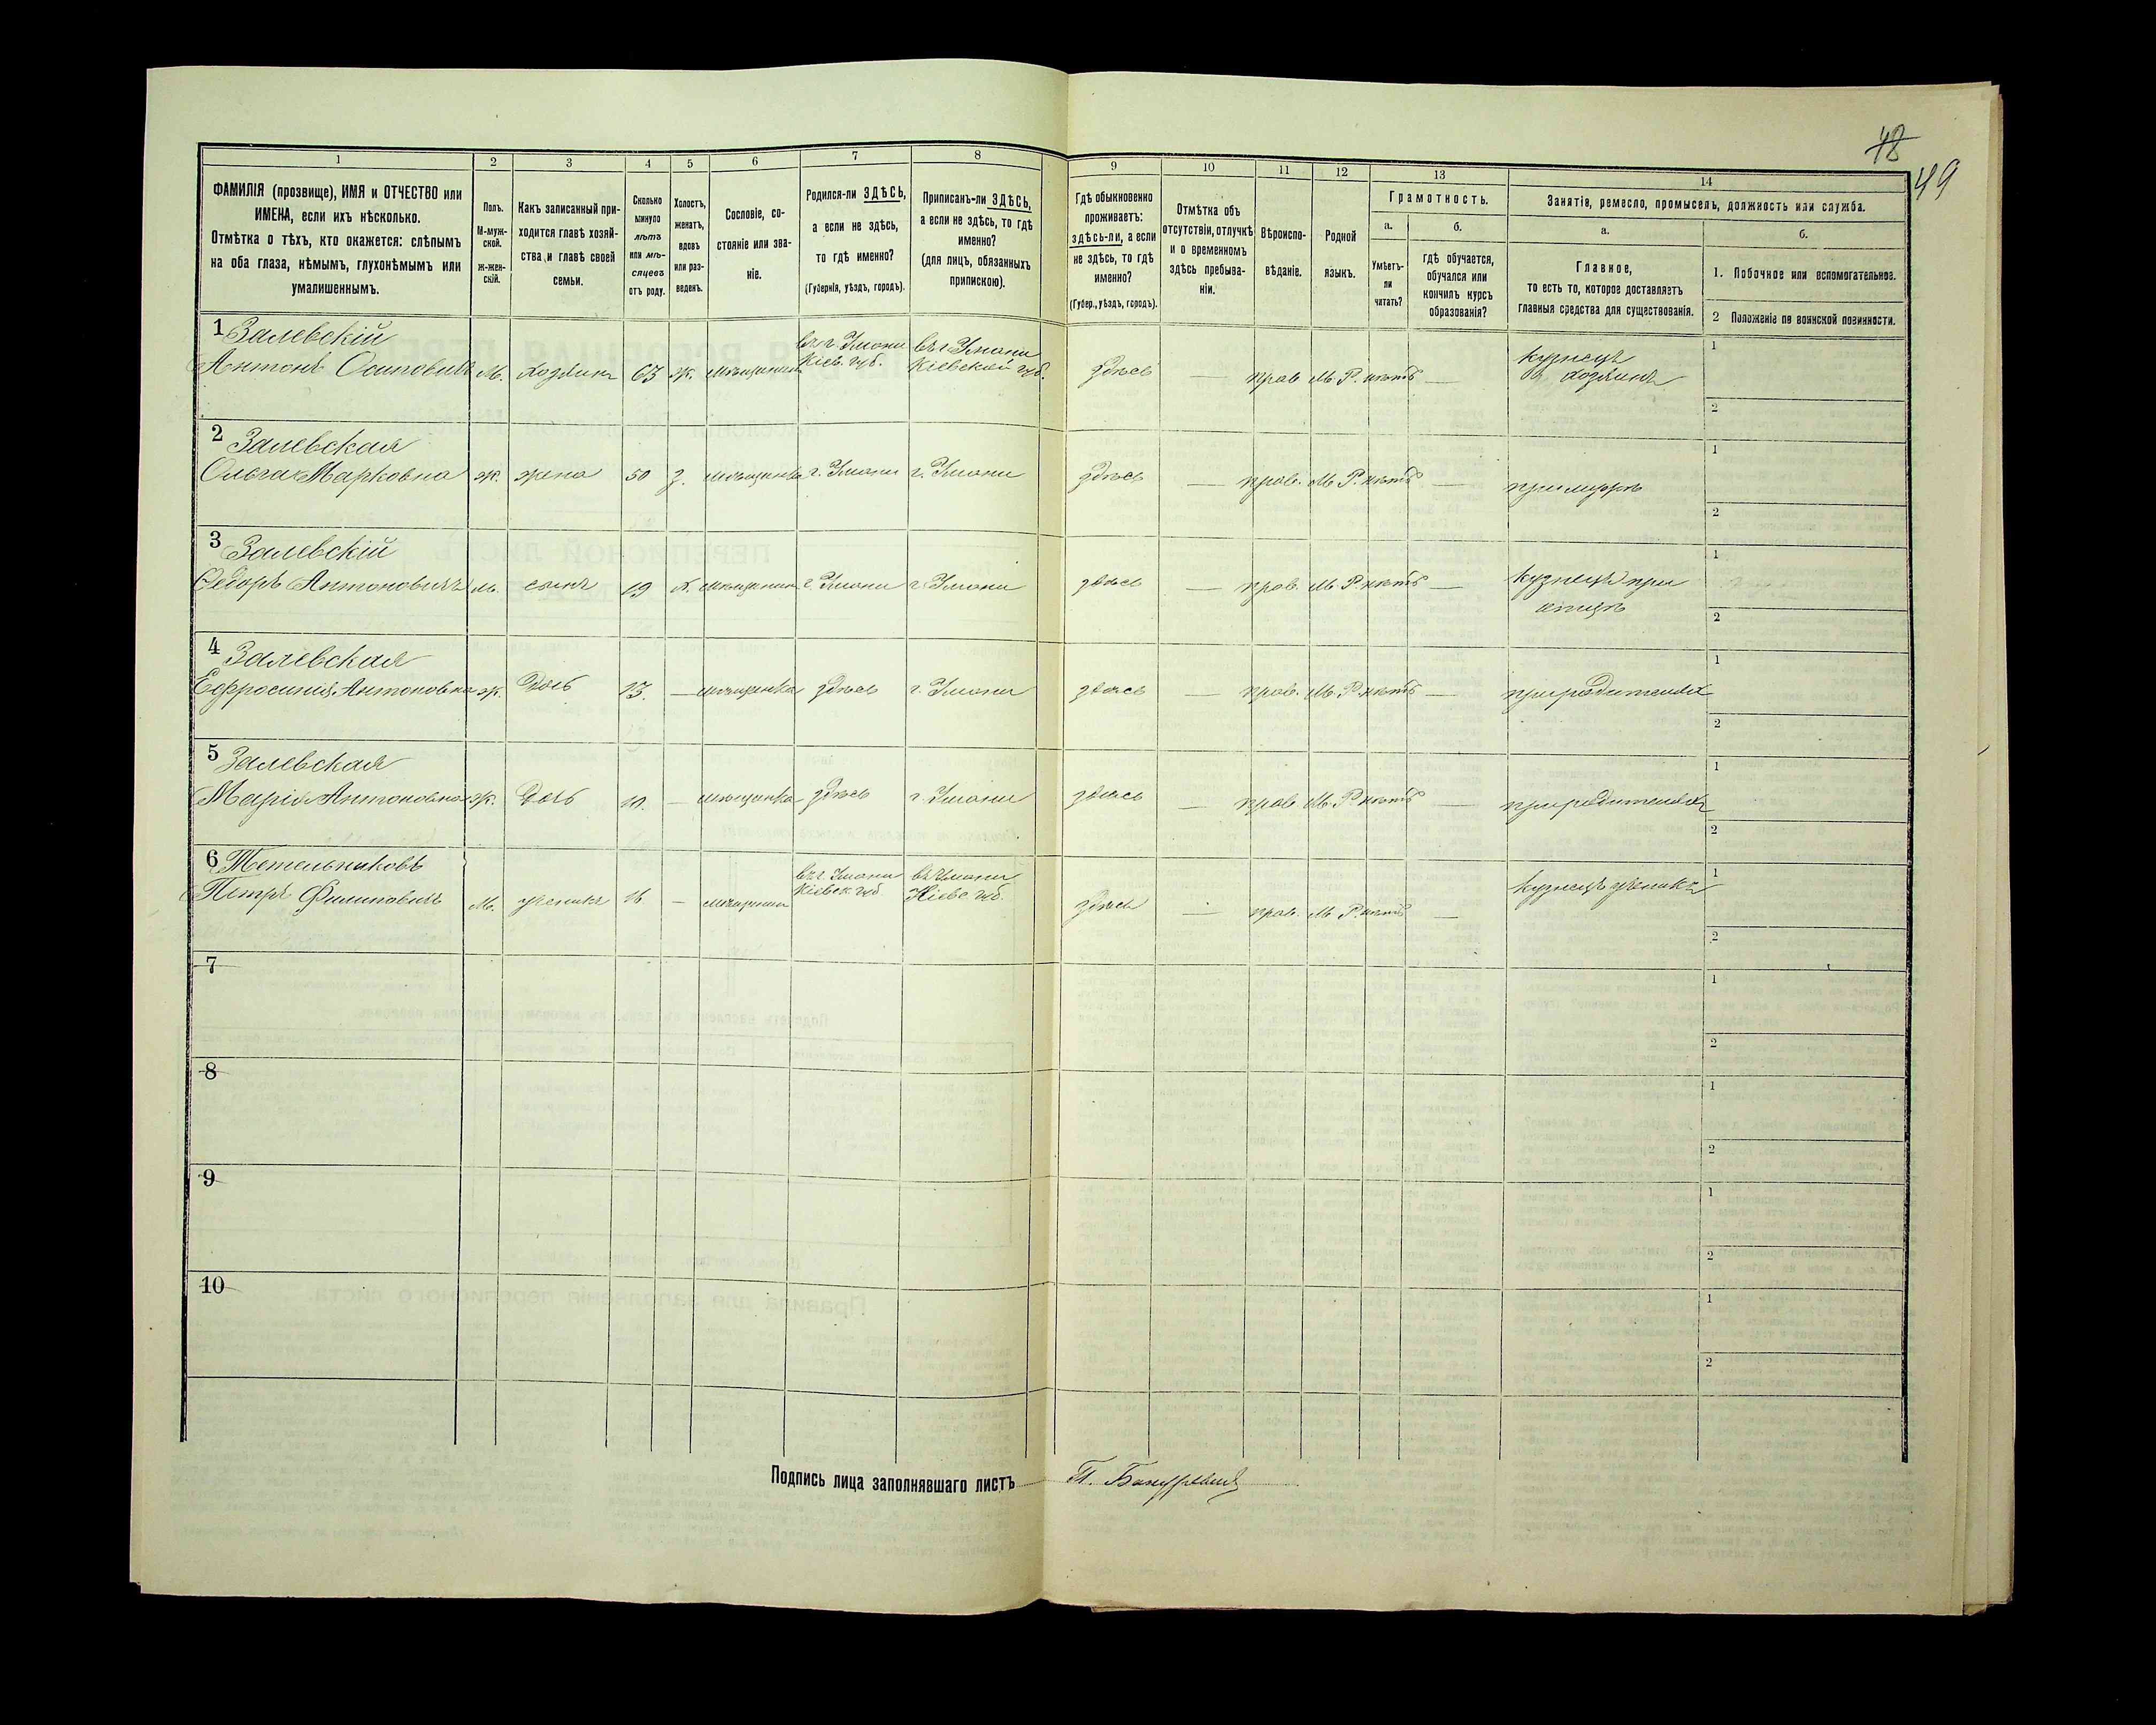 48
49
1 2 3 4 5 6 7 8 9 10 11 12 13 14
ФАМИЛІЯ (прозвище), ИМЯ и ОТЧЕСТВО или
ИМЕНА, если ихъ нѣсколько.
Отмѣтка о тѣхъ, кто окажется: слѣпымъ
на оба глаза, нѣмымъ, глухонѣмымъ или
умалишеннымъ.
Полъ.
М-муж-
ской.
ж-жен-
скій.
Какъ записанный при-
ходится главѣ хозяй-
ства и главѣ своей
семьи.
Сколько
минуло
лѣтъ
или мѣ-
сяцевъ
отъ роду.
Холостъ,
женатъ,
вдовъ
или раз-
веденъ.
Сословіе, со-
стояніе или зва-
ніе.
Родился-ли ЗДѢСЬ,
а если не здѣсь,
то гдѣ именно?
(Губернія, уѣздъ, городъ).
Приписанъ-ли ЗДѢСЬ,
а если не здѣсь, то гдѣ
именно?
(для лицъ, обязанныхъ
припискою).
Гдѣ обыкновенно
проживаетъ:
здѣсь-ли, а если
не здѣсь, то гдѣ
именно?
(Губер., уѣздъ, городъ).
Отмѣтка объ
отсутствіи, отлучкѣ
и о временномъ
здѣсь пребыва-
ніи.
Вѣроиспо-
вѣданіе.
Родной
языкъ.
Грамотность.
а.
Умѣетъ-
ли
читать?
б.
гдѣ обучается,
обучался или
кончилъ курсъ
образованія?
Занятіе, ремесло, промыселъ, должность или служба.
а.
Главное,
то есть то, которое доставляетъ
главныя средства для существованія.
б.
1. Побочное или вспомогательное.
2 Положеніе по воинской повинности.
1 Залевскій
Антонъ Осиповичъ М. хозяинъ 63 ж. мѣщанинъ
въ г. Умани
Кіев. губ.
въ г. Умани
Кіевской губ.
здѣсь — прав М. Р. нѣтъ —
кузнецъ
хозяинъ
1
2
2 Залевская
Ольга Марковна ж. жена 50 з. мѣщанка г. Умани г. Умани здѣсь — прав. М. Р. нѣтъ —
при мужѣ
1
2
3 Залевскій
Ѳедоръ Антоновичъ м. сынъ 19 х. мѣщанинъ г. Умани г. Умани здѣсь — прав. М. Р. нѣтъ —
кузнецъ при
отцѣ
1
2
4 Залевская
Ефросинія Антоновна ж. Дочь 13. — мѣщанка здѣсь г. Умани здѣсь — прав. М. Р. нѣтъ —
при родителяхъ
1
2
5 Залевская
Марія Антоновна ж. Дочь — мѣщанка здѣсь г. Умани здѣсь — прав. М. Р. нѣтъ —
при родителяхъ
1
2
6
Петръ Филиповичъ М. ученикъ 16 — мѣщанинъ
въ г. Умани
Кіевск губ
въ Умани
Кіевс губ.
здѣсь — прав. М. Р. нѣтъ —
кузнецъ ученикъ
1
2
7
1
2
8
1
2
9
1
2
10
1
2
Подпись лица заполнявшаго листъ